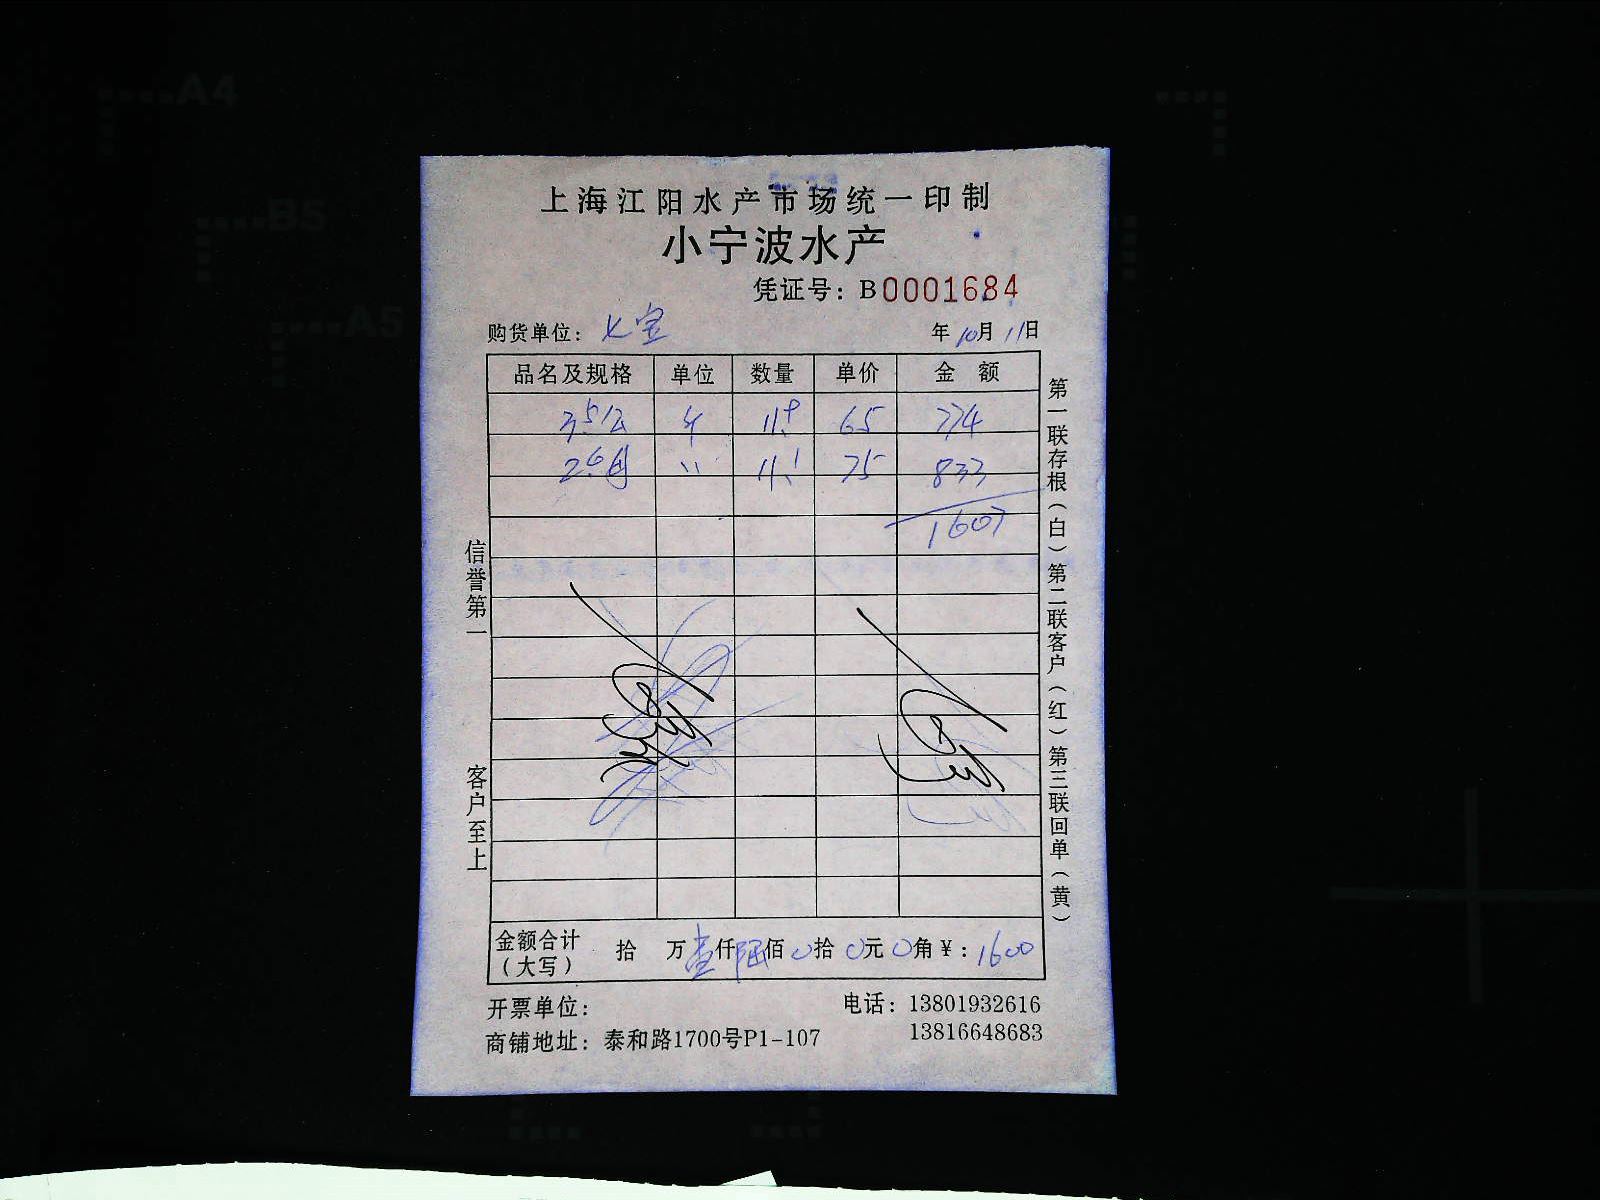 上海江阳水产市场统一印制
小宁波水产
凭证号：B0001684
购货单位：七宝 年10月11日
品名及规格 单位 数量 单价 金额
65 774
75 833
1607
信誉第一 客户至上
第一联存根（白）第二联客户（红）第三联回单（黄）
金额合计（大写） 拾 万壹仟陆佰0拾0元0角￥：1600
开票单位： 电话：13801932616
13816648683
商铺地址：泰和路1700号P1-107
A4
B5
A5